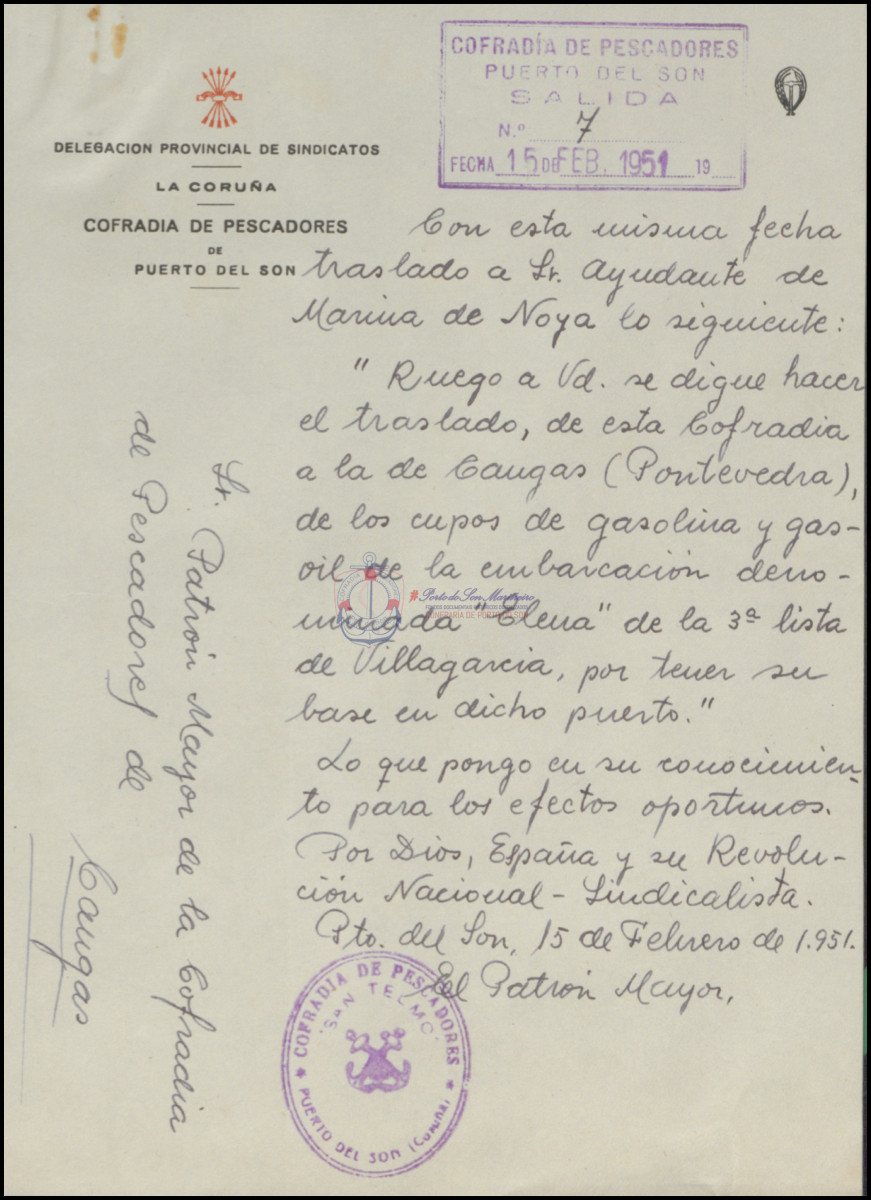 COFRADÍA DE PESCADORES
PUERTO DEL SON
SALIDA
N.º 7
FECHA 15 DE FEB. 1951 19
DELEGACION PROVINCIAL DE SINDICATOS
LA CORUÑA
COFRADIA DE PESCADORES
DE
PUERTO DEL SON
Con esta misma fecha
traslado a Sr. Ayudante de
Marina de Noya lo siguiente:
" Ruego a Vd. se digue hacer
el traslado, de esta Cofradia
a la de Cangas (Pontevedra),
de los cupos de gasolina y gas-
oil de la embarcación deno-
minada "Elena" de la 3ª lista
de Villagarcia, por tener su
base en dicho puerto."
Lo que pongo en su conocimien-
to para los efectos oportunos.
Por Dios, España y su Revolu-
ción Nacional-Sindicalista.
Pto. del Son, 15 de Febrero de 1.951.
El Patrón Mayor,
Sr. Patrón Mayor de la Cofradia
de Pescadores de
Cangas
COFRADIA DE PESCADORES
"SAN TELMO"
PUERTO DEL SON (Coruña)
#Porto do Son Marineiro